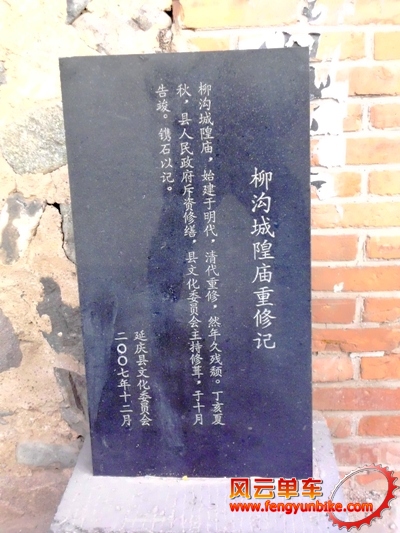 柳沟城隍庙重修记
柳沟城隍庙，始建于明代，清代重修，然年久残颓。丁亥夏
秋，县人民政府斥资修缮，县文化委员会主持修葺，于十月
告竣。镌石以记。
延庆县文化委员会
二〇〇七年十二月
风云单车
www.fengyunbike.com